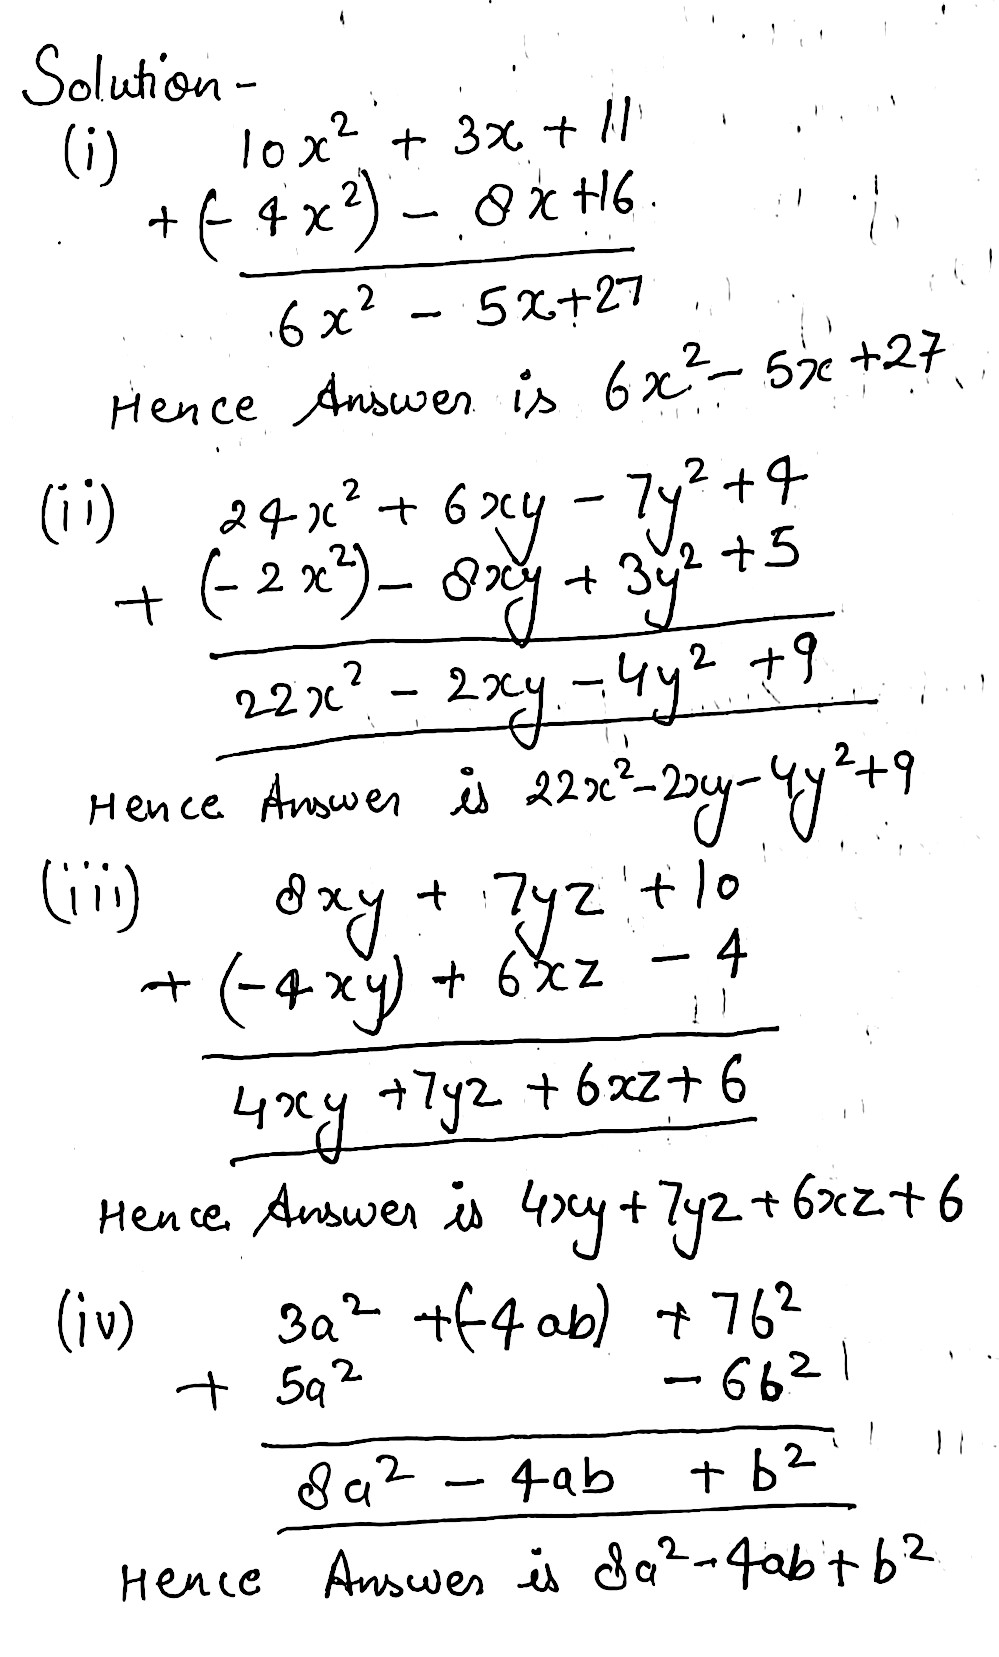 Solution -
(i) 10x² + 3x + 11
+ (- 4x²) - 8x +16
6x² - 5x+27
Hence Answer is 6x² - 5x +27
(ii) 24x² + 6xy - 7y² + 4
+ (- 2x²) - 8xy + 3y² + 5
22x² - 2xy - 4y² + 9
Hence Answer is 22x² - 2xy - 4y² + 9
(iii) 8xy + 7yz + 10
+ (-4xy) + 6xz - 4
4xy + 7yz + 6xz + 6
Hence Answer is 4xy + 7yz + 6xz + 6
(iv) 3a² +(-4ab) + 7b²
+ 5a² - 6b²
8a² - 4ab + b²
Hence Answer is 8a² - 4ab + b²